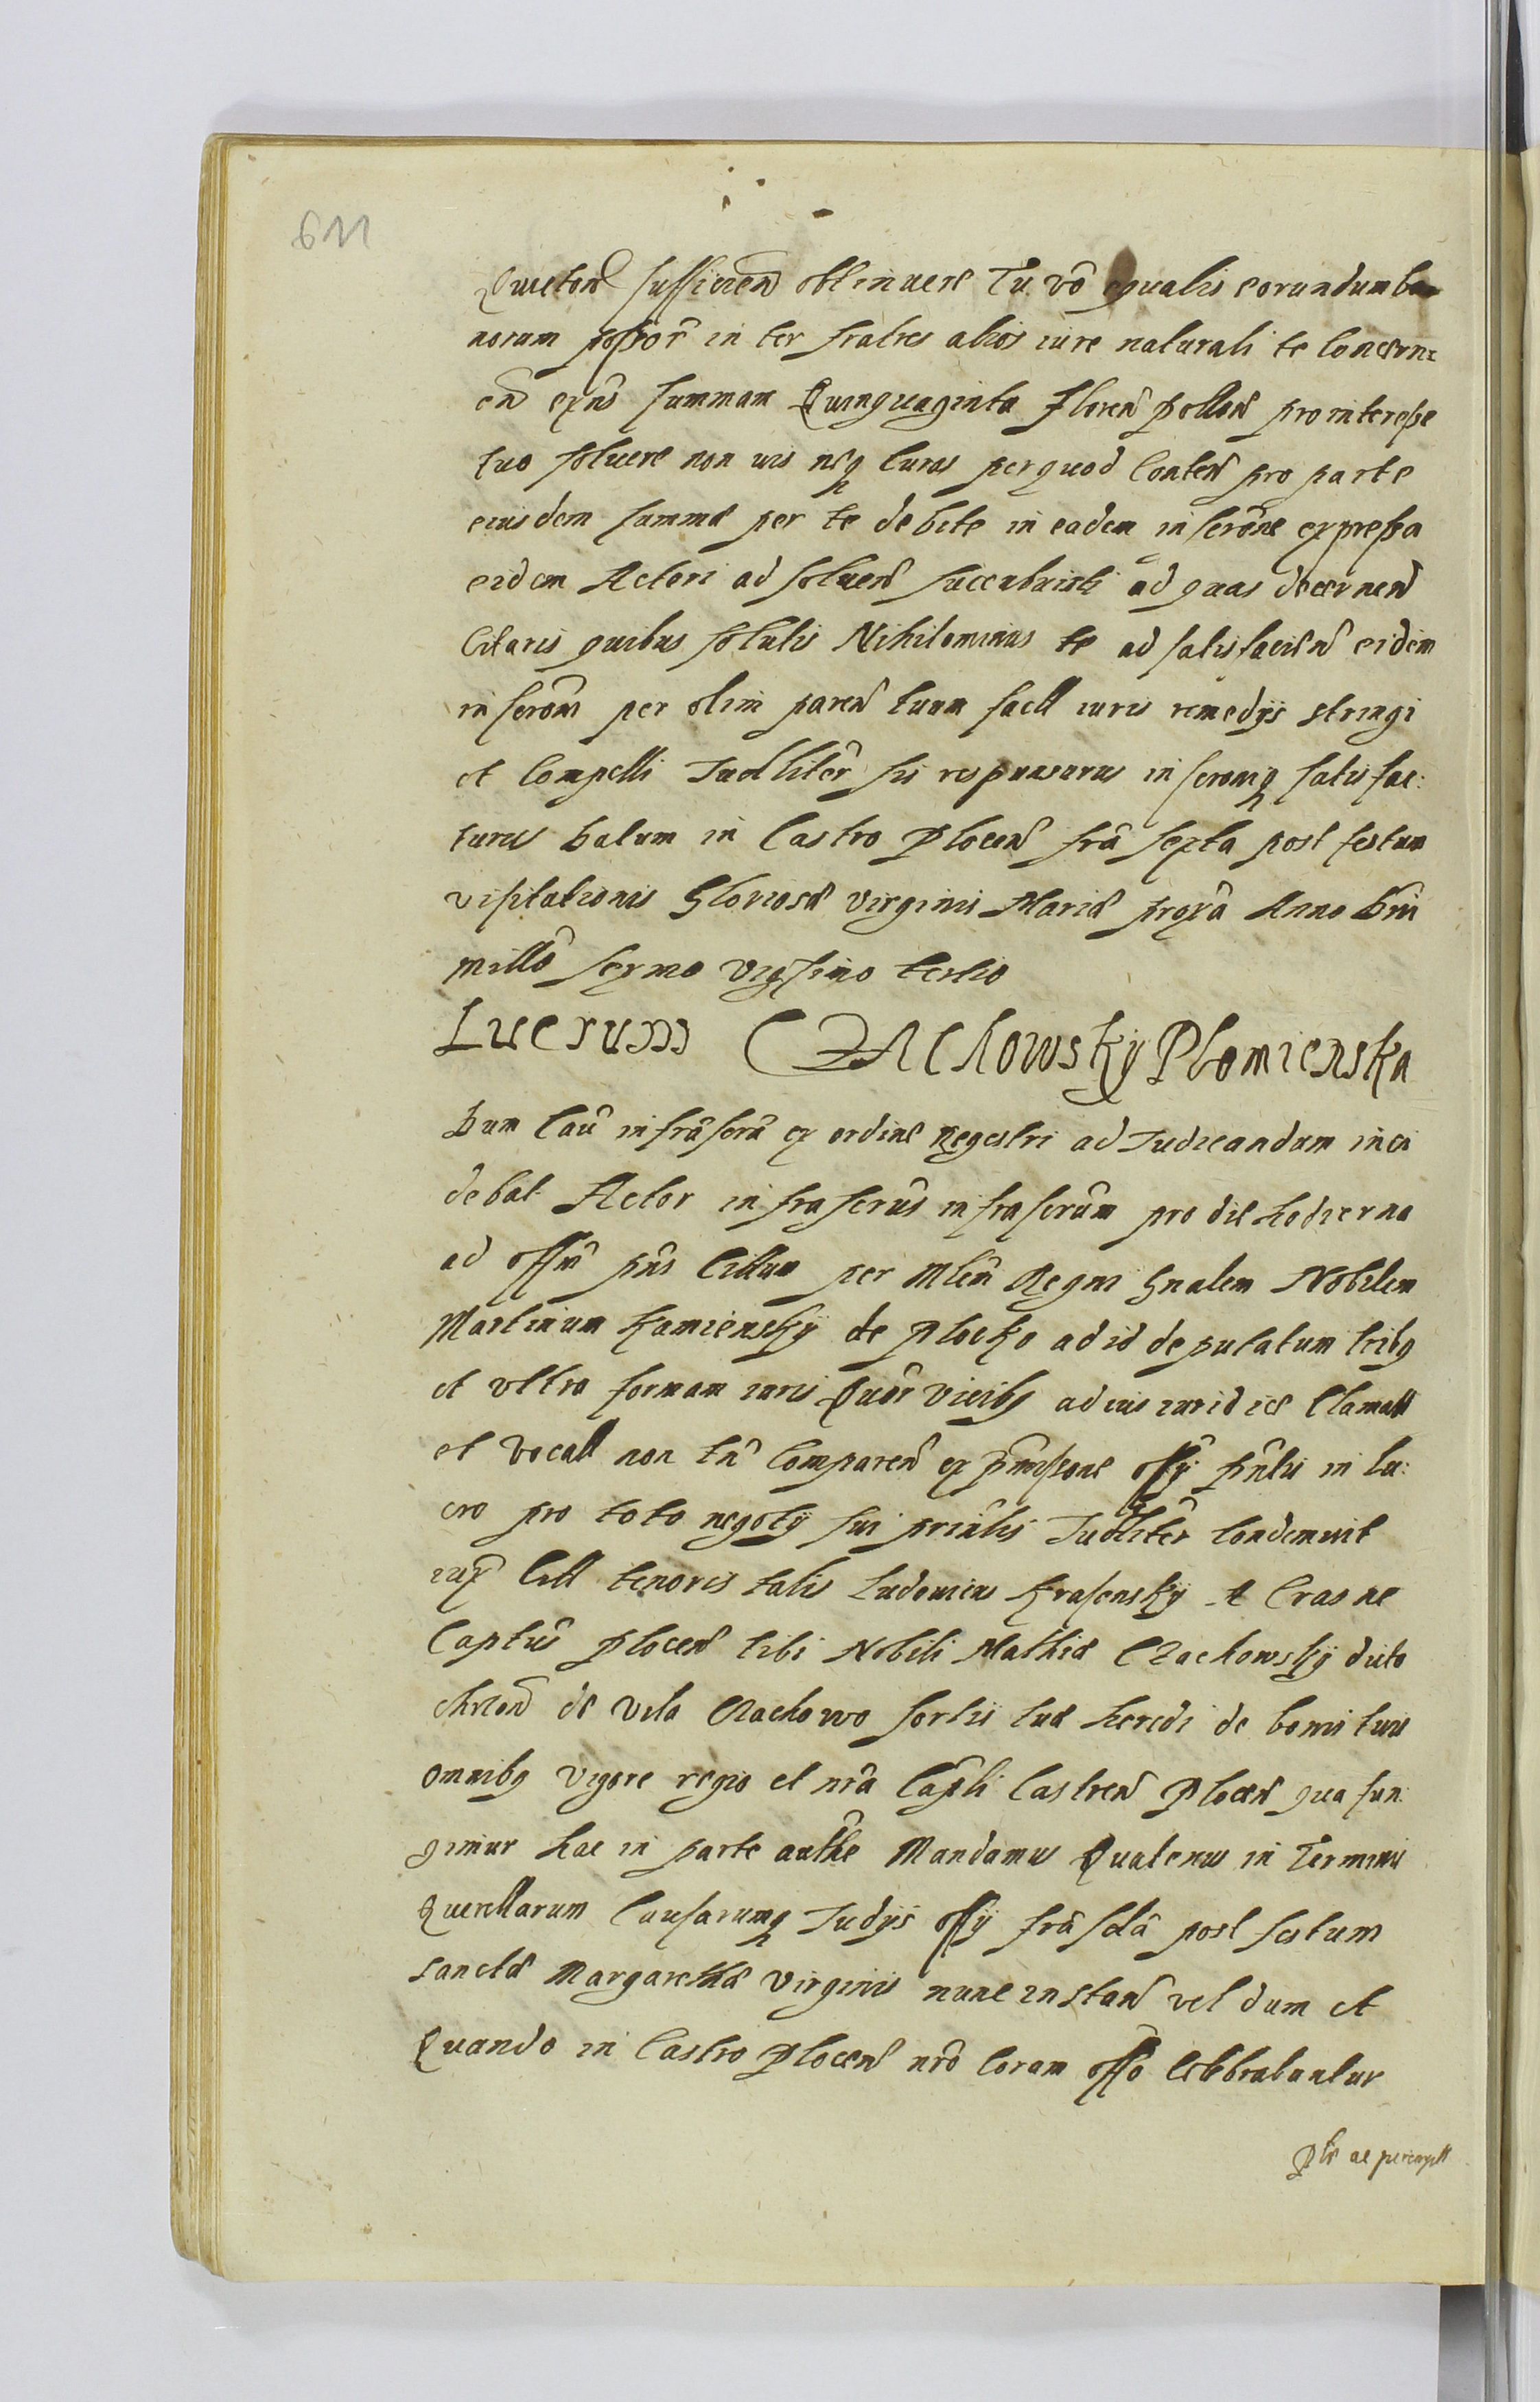 611
Quieton sufficien obtinuere Tu vo equalis eorundum bo
norum possor in ter fratres alios iure naturali te concern:
en exns summam Quinquaginta Floren pollon pro interesse
tuo soluere non uis neq curas per quod conten pro parte
eiusdem summæ per te debite in eadem inscrone expressa
eidem Actori ad soluen succubuisti ad quas decernen
Citaris quibus solutis Nihilominus te ad satisfacien eidem
inscroni per olim paren tuum fact iuris remedys stringi
et Compelli Judliter sis responsurus inscroniq satisfac:
turus Datum in Castro Plocen fra sexta post festum
visitationis Gloriosæ virginis Mariæ proxa Anno Dni
millo sexmo vigesimo tertio
Lucrum CZAchowsky Plomienska
Dum Cau infrascra ex ordine Regestri ad Judicandum inci
debat Actor infrascrus infrascrum pro die hodierna
ad offm pns Cittum per Mlem Regni Gnalem Nobilem
Martinum Kamiensky de Plocko ad id deputatum tribq
et vltra formam iuris Quor vicibq ad ius iuridice Clamatt
et vocatt non tn Comparen ex pmissione offy pntis in lu:
cro pro toto negoty sui prinlis Judliter condemnit
iux Citt tenoris talis Ludouicus Krasensky A Crasne
Captus Plocen tibi Nobili Mathiæ Czachowsky dicto
de Vila Czachowo sortis tuæ heredi de bonis tuis
omnibq vigore regio et nra Capli Castren Plocen qua fun:
gimur hac in parte authe Mandamus Quatenus in Terminis
Querellarum Causarumq Judys offy fra scda post festum
sanctæ Margarethæ virginis nunc instan vel dum et
Quando in Castro Plocen nro coram offo celebrabuntur
Ptr ac peremptt